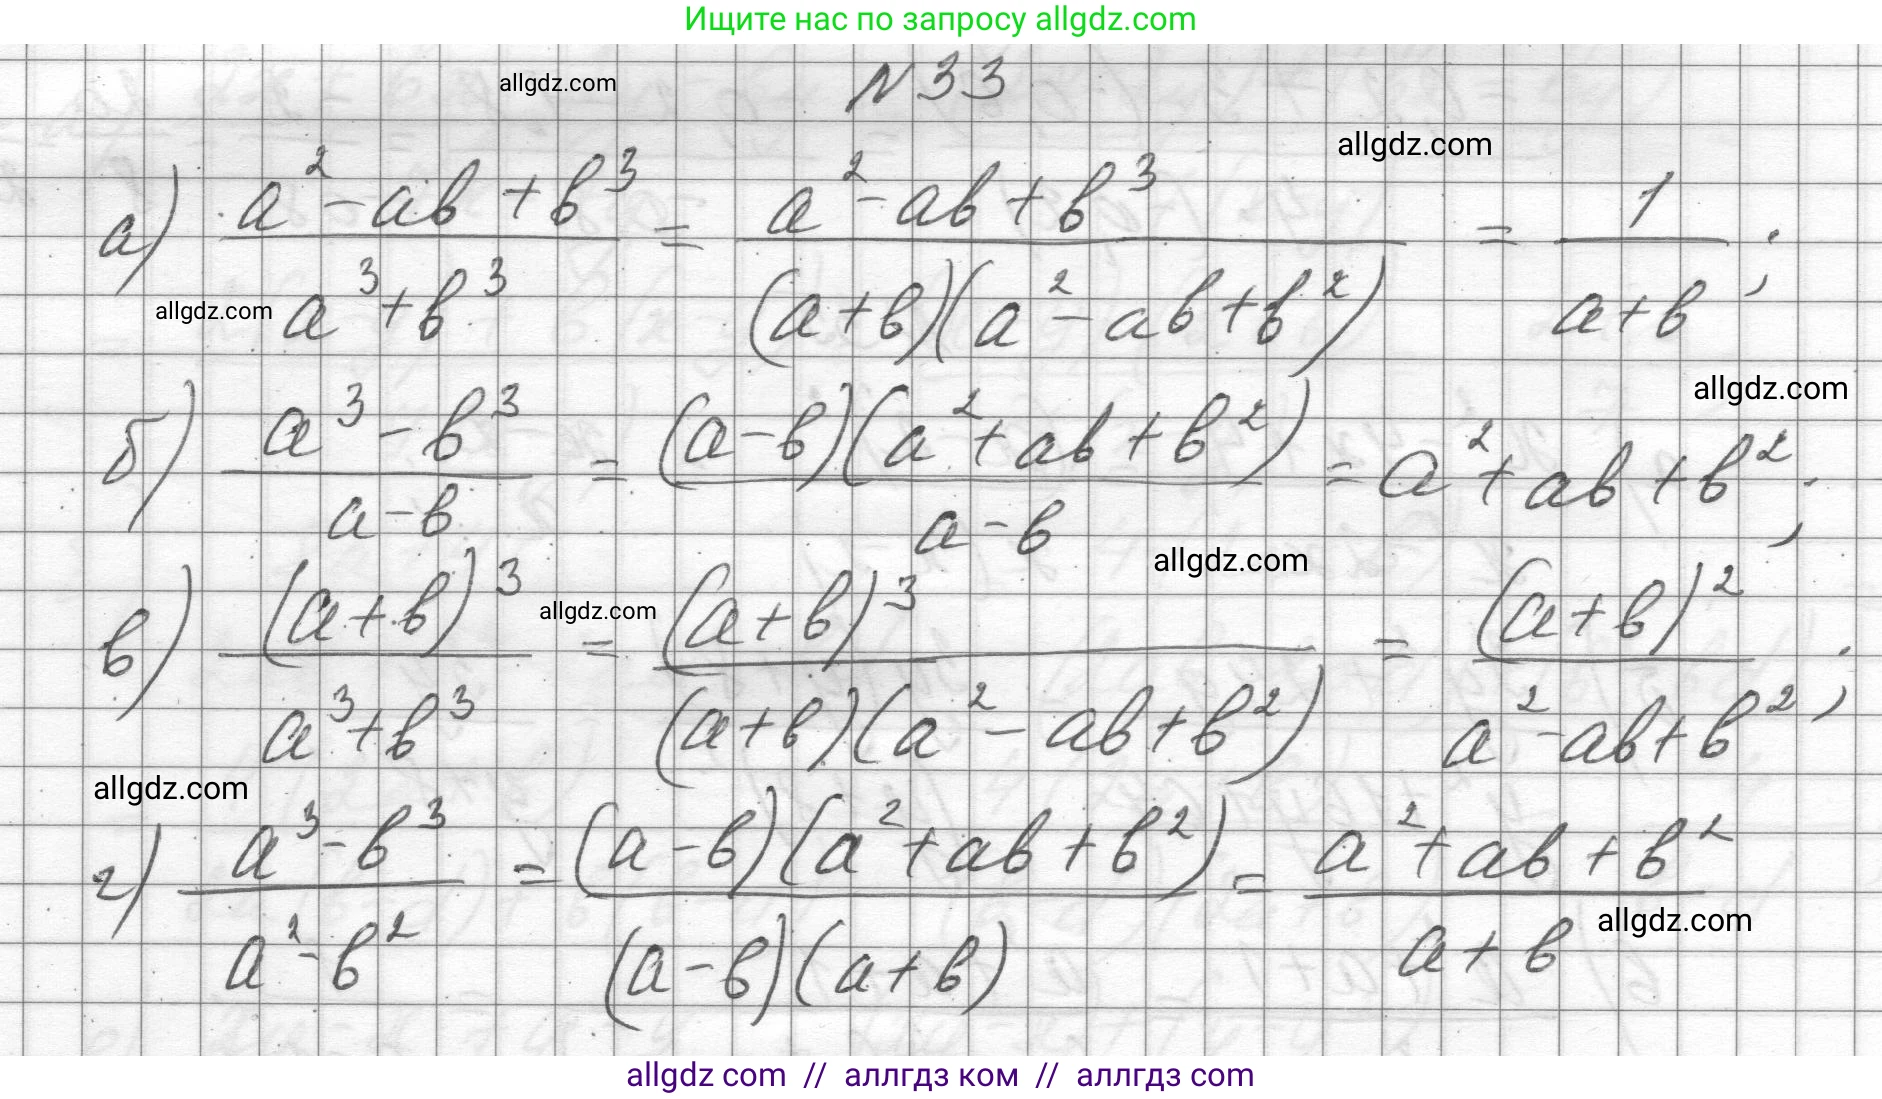 Ищите нас по запросу allgdz.com
allgdz.com
N 33
allgdz.com
а) (a² - ab + b³)/(a³ + b³) = (a² - ab + b³)/((a + b)(a² - ab + b²)) = 1/(a + b);
allgdz.com
allgdz.com
б) (a³ - b³)/(a - b) = ((a - b)(a² + ab + b²))/(a - b) = a² + ab + b²;
allgdz.com
allgdz.com
в) (a + b)³/(a³ + b³) = (a + b)³/((a + b)(a² - ab + b²)) = (a + b)²/(a² - ab + b²);
allgdz.com
г) (a³ - b³)/(a² - b²) = ((a - b)(a² + ab + b²))/((a - b)(a + b)) = (a² + ab + b²)/(a + b)
allgdz.com
allgdz com // аллгдз ком // аллгдз com